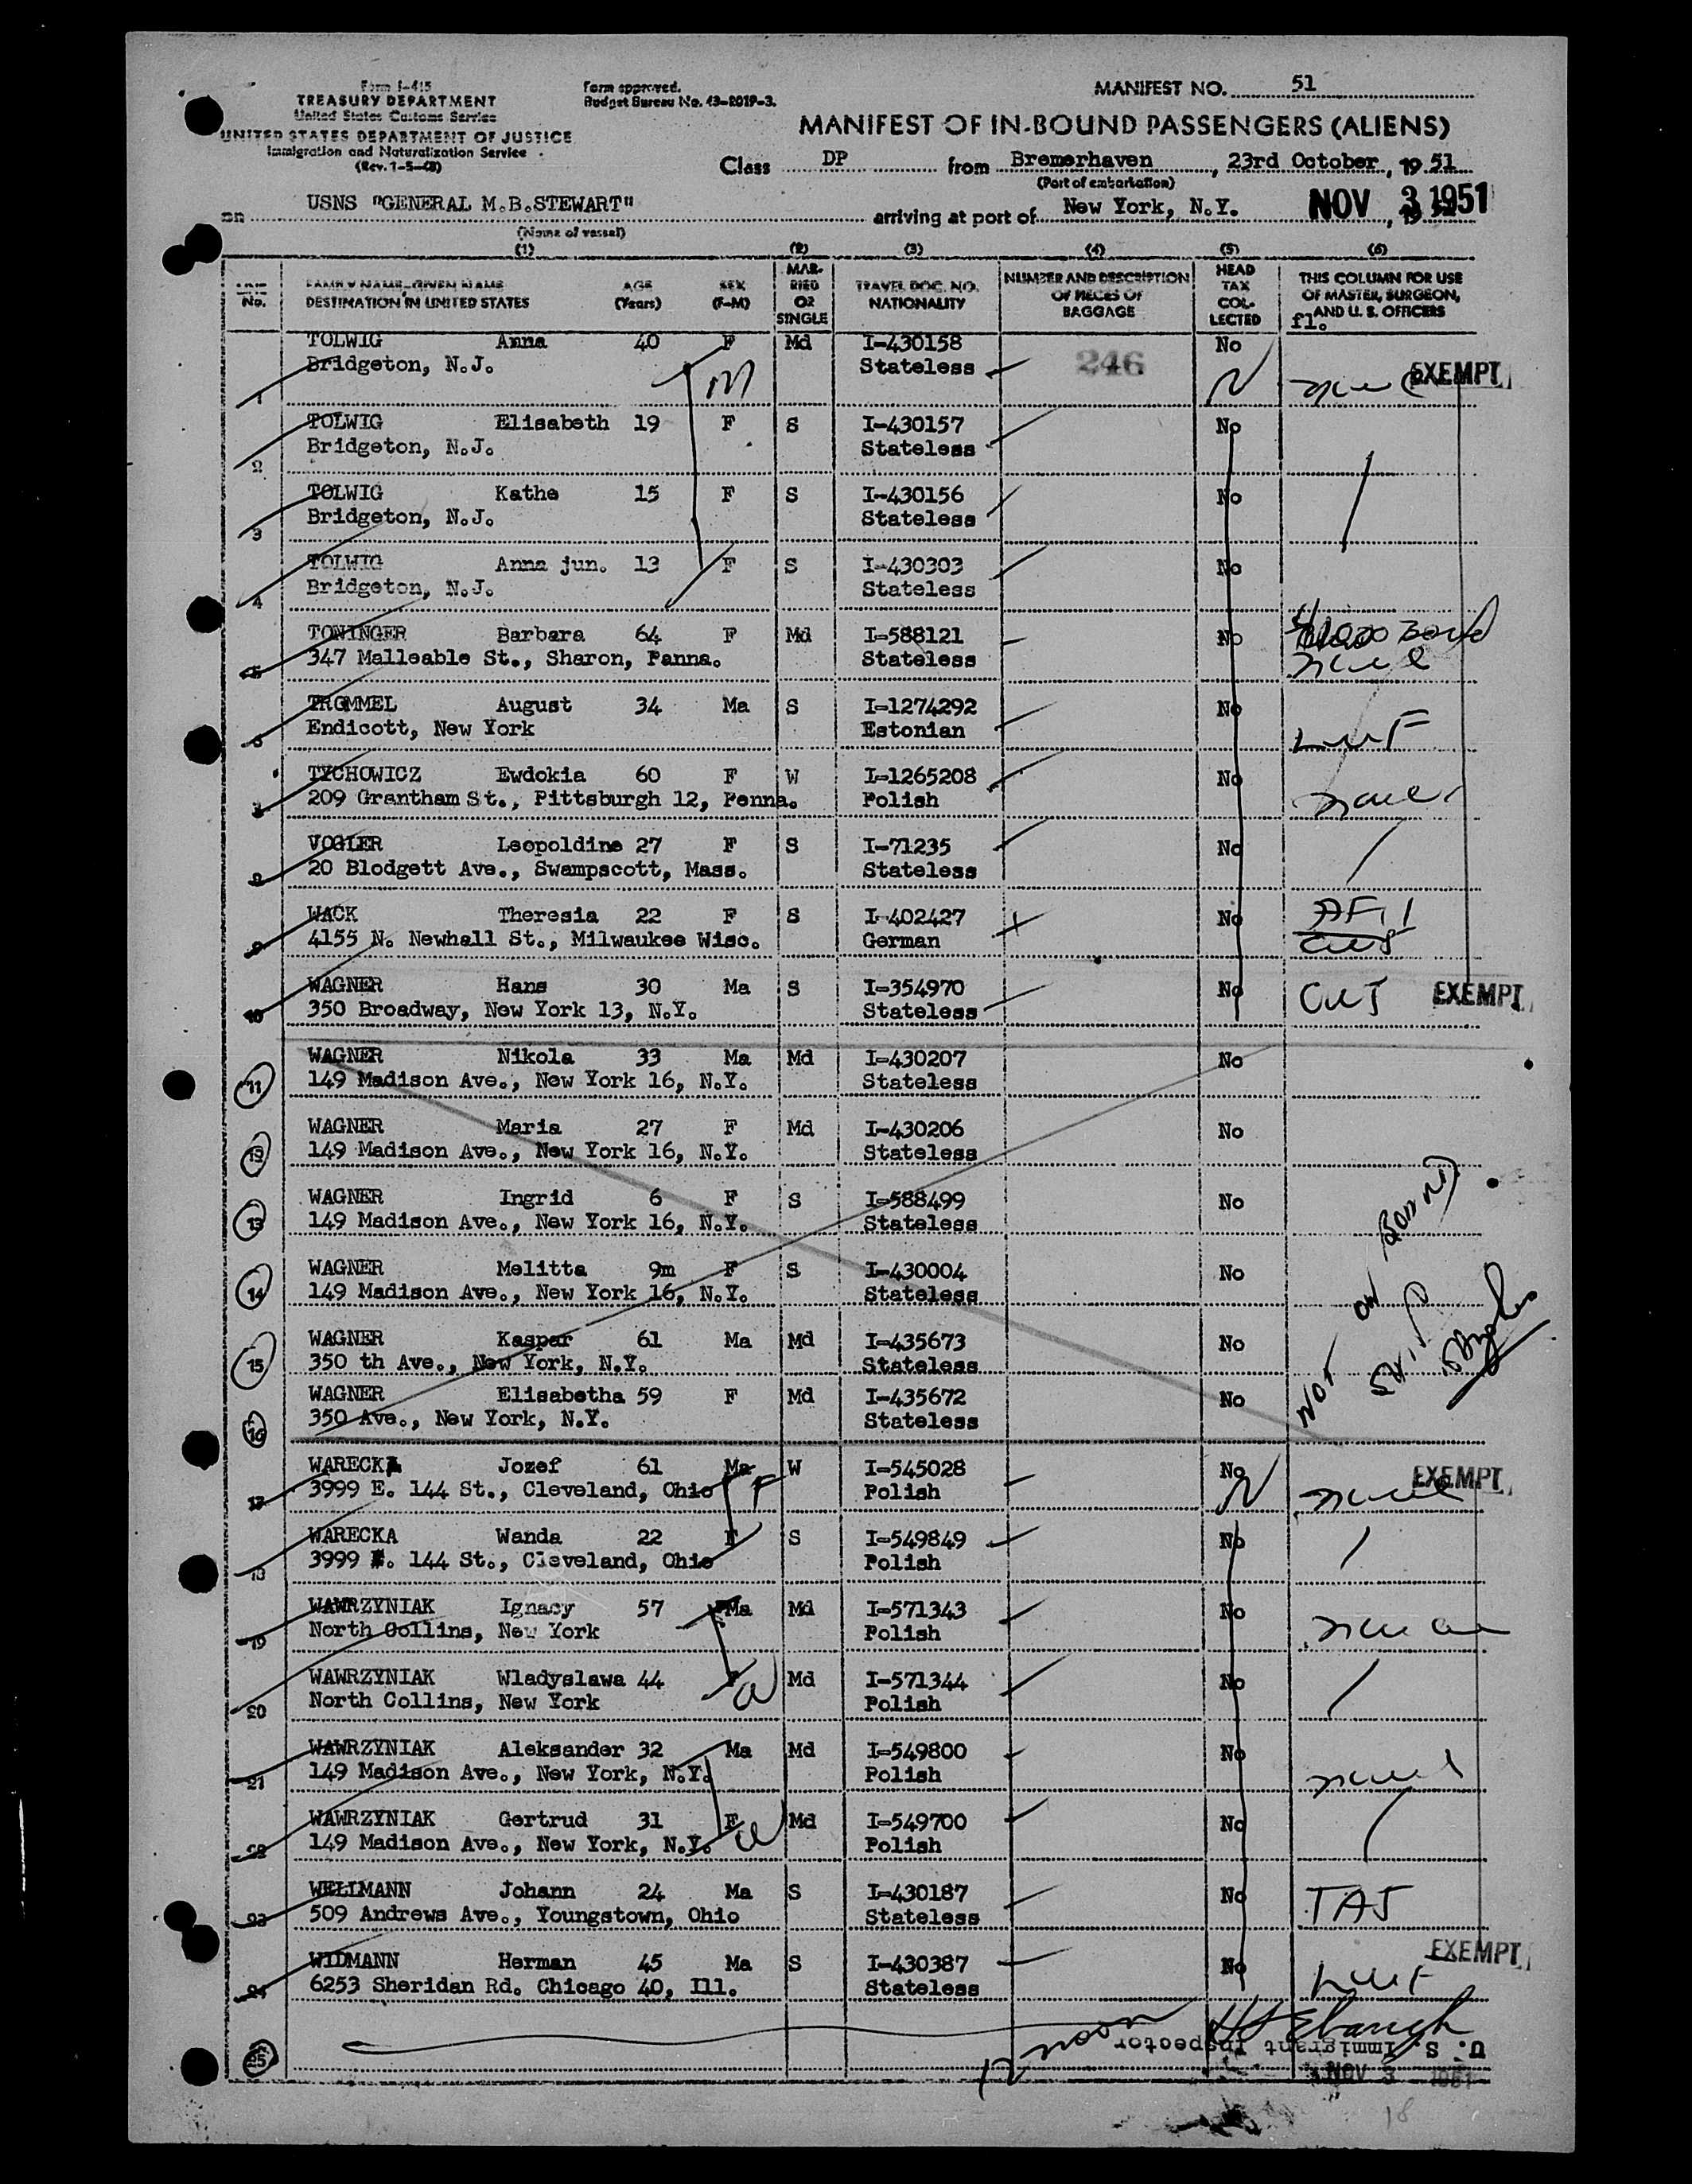 Form I-415
TREASURY DEPARTMENT
United States Customs Service
UNITED STATES DEPARTMENT OF JUSTICE
Immigration and Naturalization Service
(Rev. 1-5-48)
Form approved.
Budget Bureau No. 43-R019-3.
MANIFEST NO. 51
MANIFEST OF IN-BOUND PASSENGERS (ALIENS)
Class DP from Bremerhaven, 23rd October, 19 51
(Port of embarkation)
on USNS "GENERAL M.B.STEWART" arriving at port of New York, N.Y. NOV 3 1951
(Name of vessel)
(1) (2) (3) (4) (5) (6)
LINE No. FAMILY NAME-GIVEN NAME DESTINATION IN UNITED STATES AGE (Years) SEX (F-M) MARRIED OR SINGLE TRAVEL DOC. NO. NATIONALITY NUMBER AND DESCRIPTION OF PIECES OF BAGGAGE HEAD TAX COLLECTED THIS COLUMN FOR USE OF MASTER, SURGEON, AND U. S. OFFICERS
fl.
TOLWIG Anna 40 F Md I-430158 246 No
1 Bridgeton, N.J. Stateless EXEMPT
TOLWIG Elisabeth 19 F S I-430157 No
2 Bridgeton, N.J. Stateless
TOLWIG Kathe 15 F S I-430156 No
3 Bridgeton, N.J. Stateless
TOLWIG Anna jun. 13 F S I-430303 No
4 Bridgeton, N.J. Stateless
TONINGER Barbara 64 F Md I-588121 No
5 347 Malleable St., Sharon, Panna. Stateless
TROMMEL August 34 Ma S I-1274292 No
6 Endicott, New York Estonian
TYCHOWICZ Ewdokia 60 F W I-1265208 No
7 209 Grantham St., Pittsburgh 12, Penna. Polish
VOGLER Leopoldine 27 F S I-71235 No
8 20 Blodgett Ave., Swampscott, Mass. Stateless
WACK Theresia 22 F S I-402427 No
9 4155 N. Newhall St., Milwaukee Wisc. German
WAGNER Hans 30 Ma S I-354970 No EXEMPT
10 350 Broadway, New York 13, N.Y. Stateless
WAGNER Nikola 33 Ma Md I-430207 No
11 149 Madison Ave., New York 16, N.Y. Stateless
WAGNER Maria 27 F Md I-430206 No
12 149 Madison Ave., New York 16, N.Y. Stateless
WAGNER Ingrid 6 F S I-588499 No
13 149 Madison Ave., New York 16, N.Y. Stateless
WAGNER Melitta 9m F S I-430004 No
14 149 Madison Ave., New York 16, N.Y. Stateless
WAGNER Kaspar 61 Ma Md I-435673 No
15 350 th Ave., New York, N.Y. Stateless
WAGNER Elisabetha 59 F Md I-435672 No
16 350 Ave., New York, N.Y. Stateless
NOT ON BOARD
SHIP
WARECKA Jozef 61 Ma W I-545028 No EXEMPT
17 3999 E. 144 St., Cleveland, Ohio Polish
WARECKA Wanda 22 F S I-549849 No
18 3999 E. 144 St., Cleveland, Ohio Polish
WAWRZYNIAK Ignacy 57 Ma Md I-571343 No
19 North Collins, New York Polish
WAWRZYNIAK Wladyslawa 44 F Md I-571344 No
20 North Collins, New York Polish
WAWRZYNIAK Aleksander 32 Ma Md I-549800 No
21 149 Madison Ave., New York, N.Y. Polish
WAWRZYNIAK Gertrud 31 F Md I-549700 No
22 149 Madison Ave., New York, N.Y. Polish
WELLMANN Johann 24 Ma S I-430187 No TAJ
23 509 Andrews Ave., Youngstown, Ohio Stateless
WIDMANN Herman 45 Ma S I-430387 No EXEMPT
24 6253 Sheridan Rd. Chicago 40, Ill. Stateless
25 12 noon
U. S. Immigrant Inspector
NOV 3 1951
18